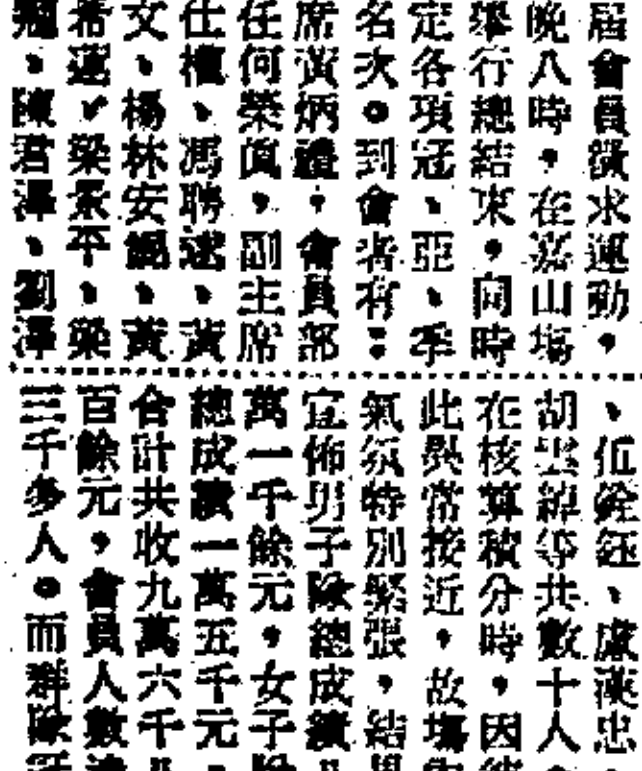 屆會員徵求運動，
晚八時，在嘉山塲
舉行總結束，同時
定各項冠、亞、季
名次。到會者有：
席黃炳禮，會員部
任何榮眞，副主席
仕權、馮聘逑、黃
文、楊林安、黃
希蓮、梁景平、梁
、陳君澤、劉澤
、伍銓鈺、盧漢忠、
胡焯等共數十人。
在核算積分時，因
此異常接近，故塲
氣氛特別緊張，結
宣佈男子隊總成績
萬一千餘元，女子
總成績一萬五千元，
合計共收九萬六千
百餘元，會員人數
三千多人。而群隊